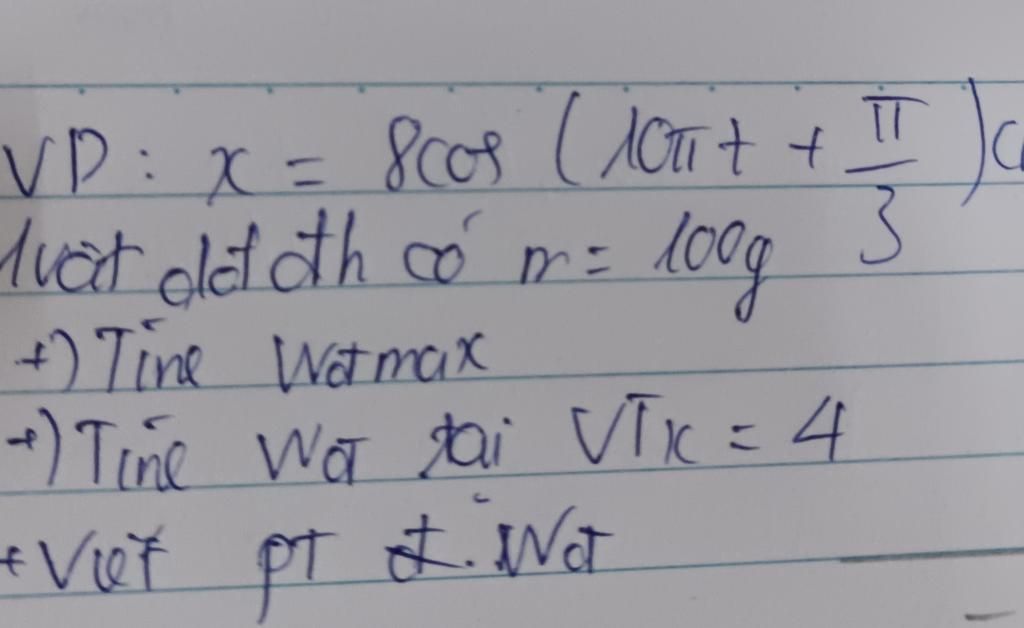 VD: x = 8cos (10πt + π/3) c
1 vật dđ đh có m = 100g
+) Tính Wđmax
+) Tính Wđ tại VT x = 4
+ Viết pt Wđ